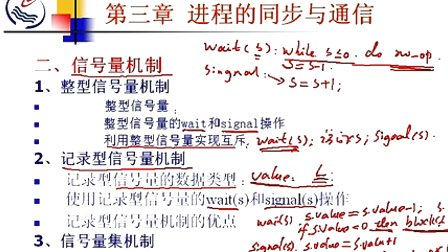 第三章 进程的同步与通信
wait(s): while s≤0 do no-op
s=s-1;
二、信号量机制
singnal:
s=s+1;
1、整型信号量机制
整型信号量：
整型信号量的wait和signal操作
利用整型信号量实现互斥，wait(s); 访问s; signal(s).
2、记录型信号量机制
记录型信号量的数据类型： value: L;
使用记录型信号量的wait(s)和signal(s)操作
wait(s) s.value=s.value-1;
if s.value<0 then block(
记录型信号量机制的优点
signal(s). s.value=s.value+1
3、信号量集机制